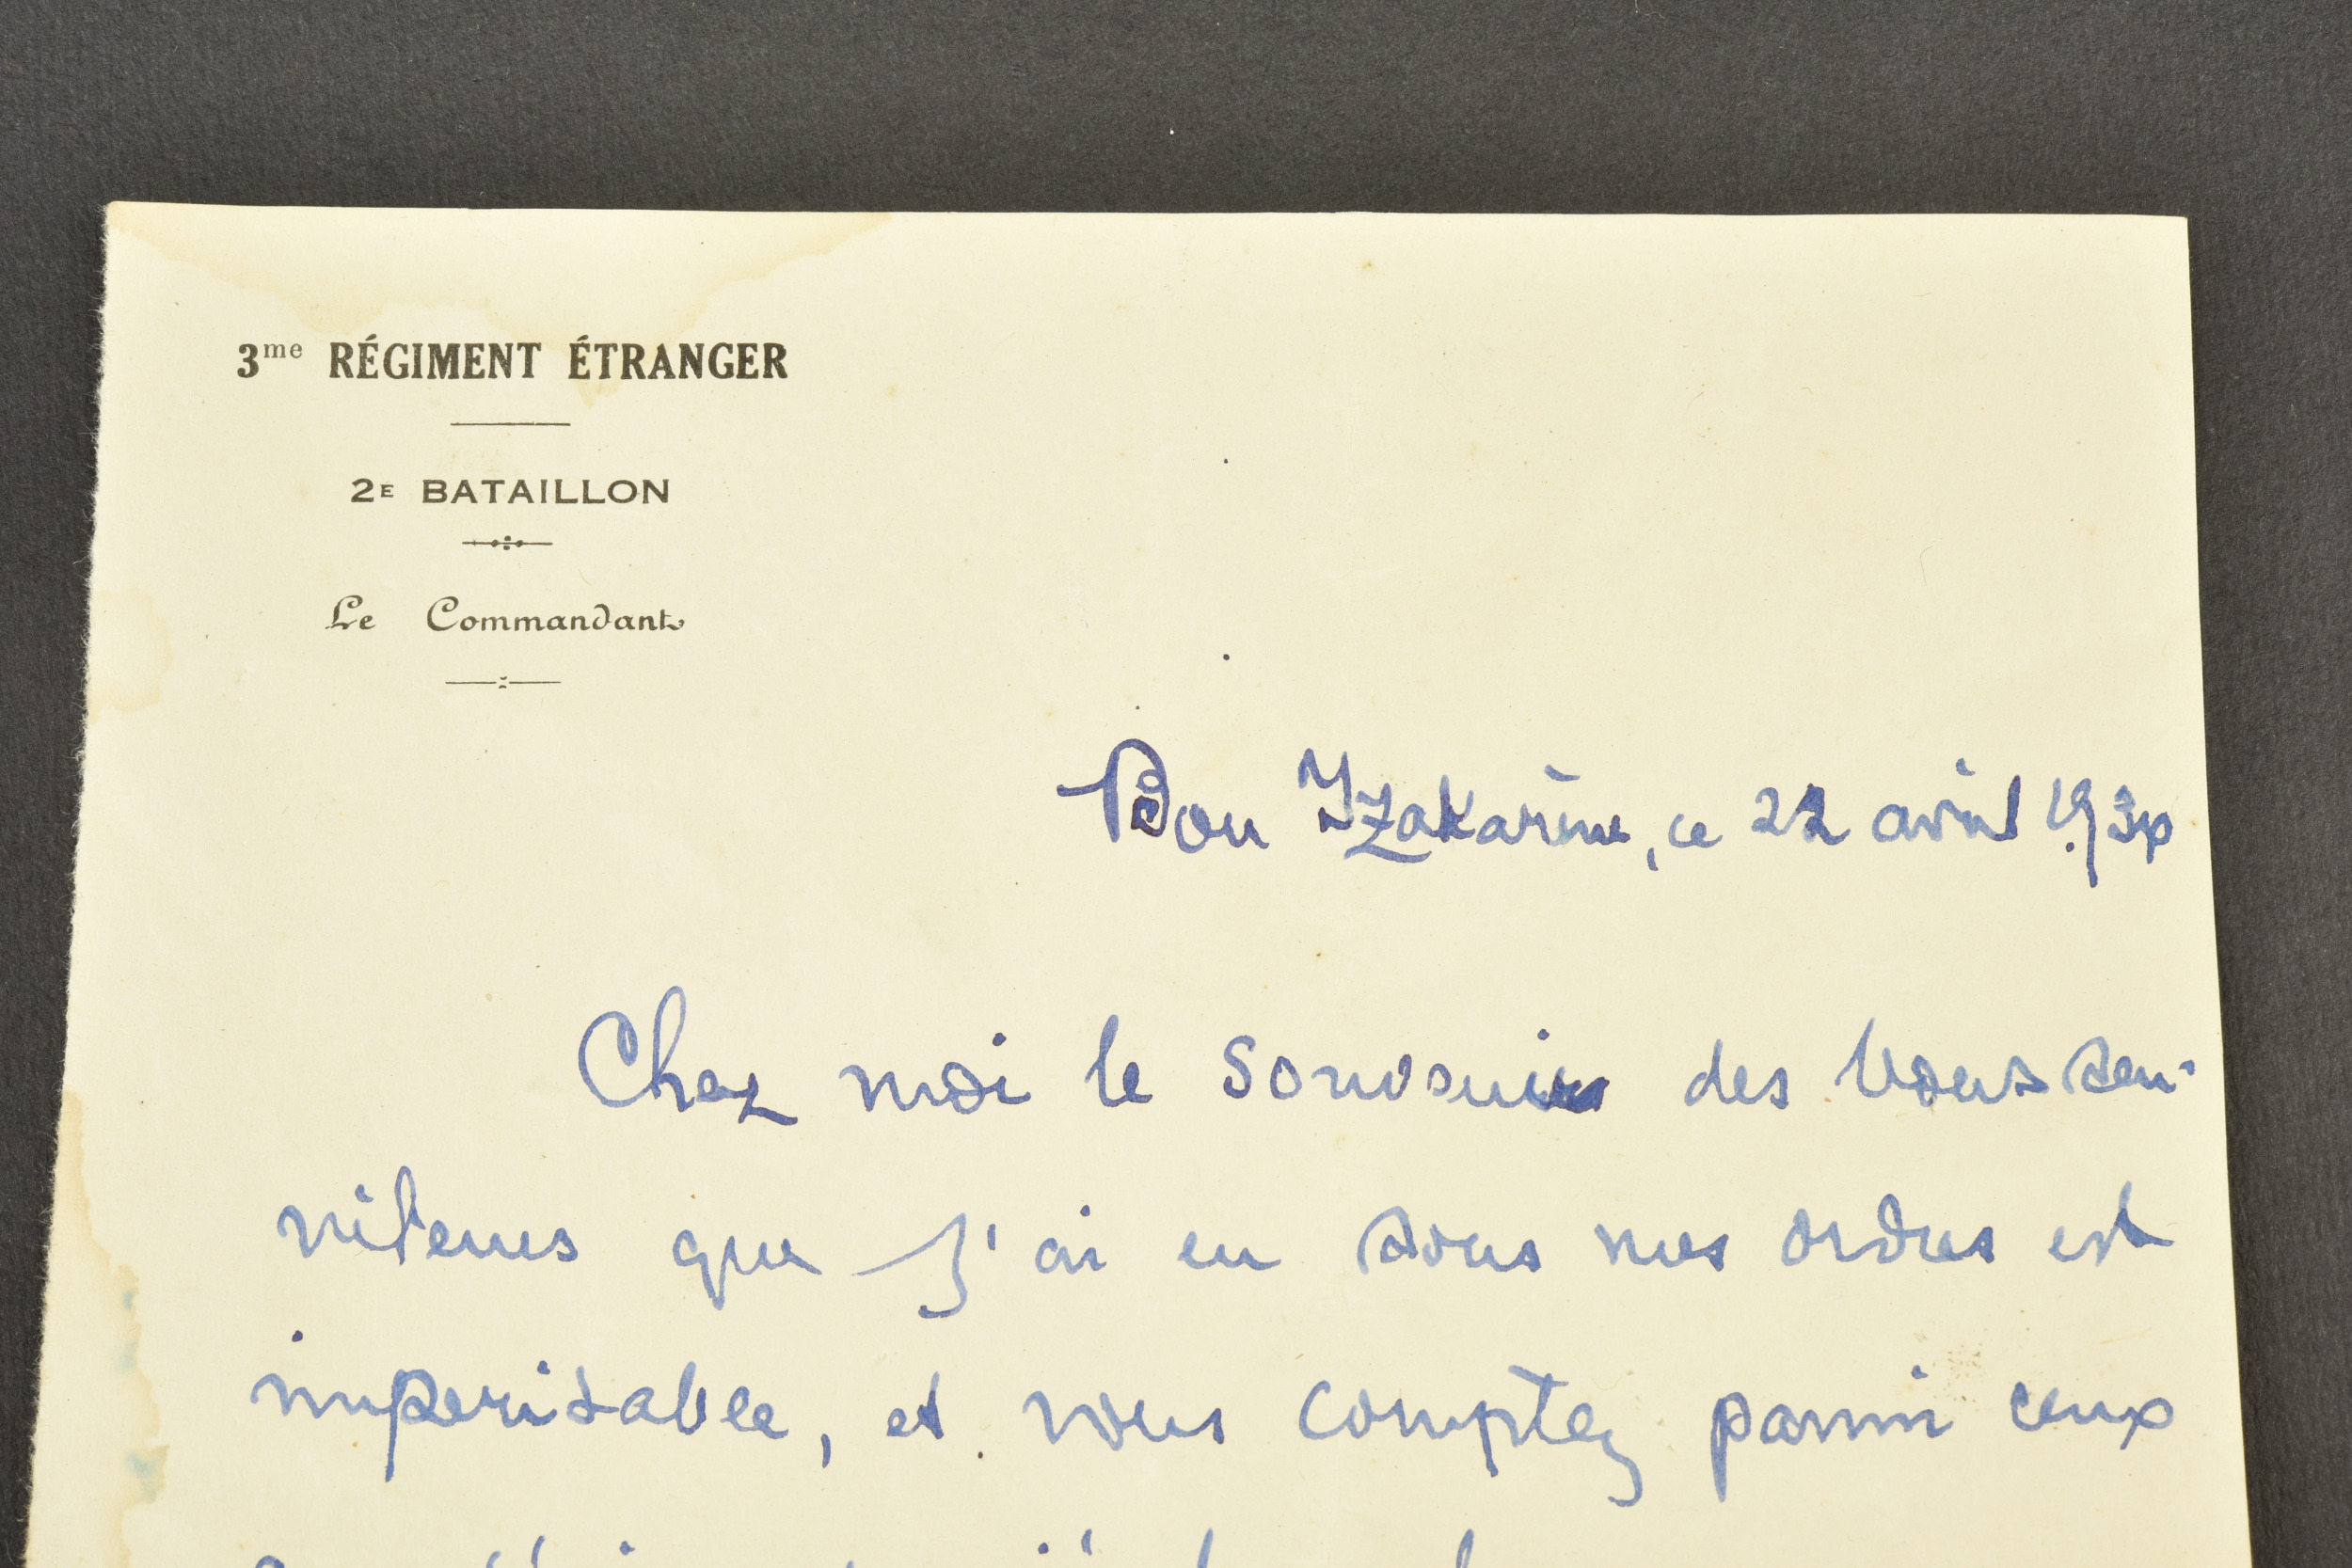 3me RÉGIMENT ÉTRANGER
2E BATAILLON
Le Commandant
Bou Izakarène, ce 22 avril 193
Chez moi le souvenir des
que j'ai eu sous mes ordres est
imperisable, et vous comptez parmi ceux